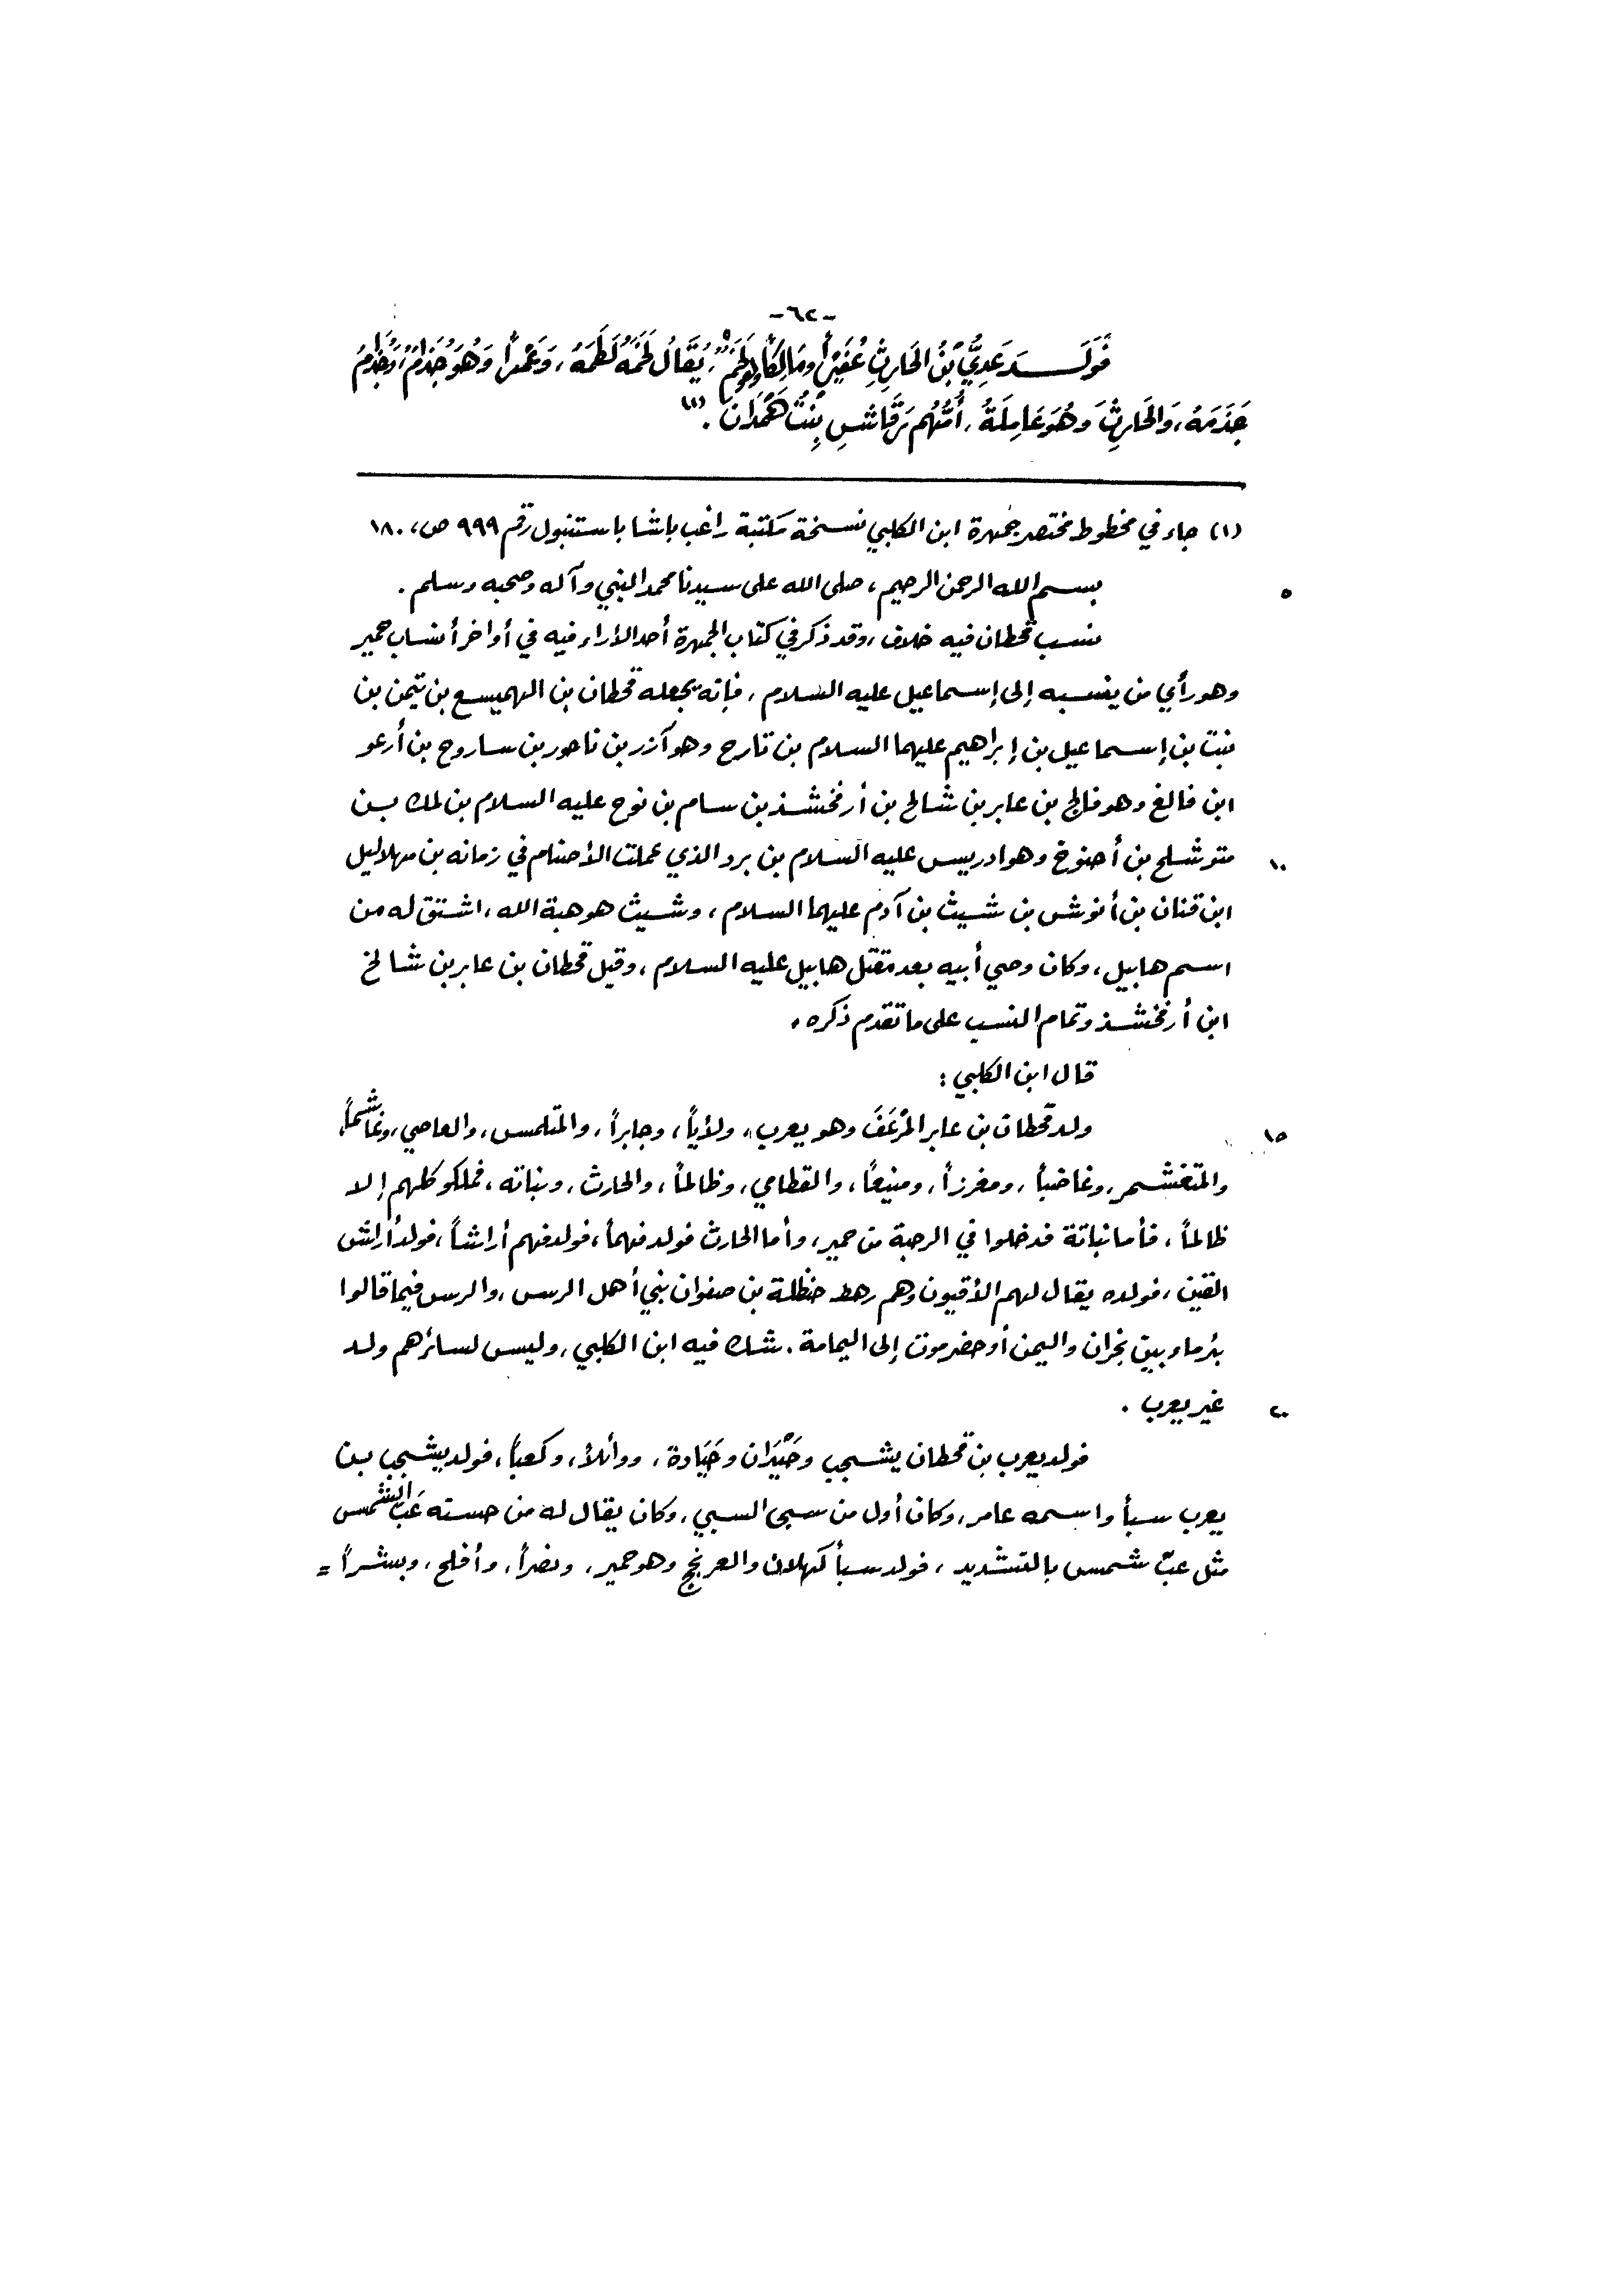 -٦٢-
فَوَلَــدَ عَدِيُّ بْنُ الحَارِثِ عُفَيْراً وَمَالِكاً وَهُوَ لَخْمٌ، يُقَالُ لَخَمَهُ لَطَمَهُ، وَعَمْراً وَهُوَ جُذَامٌ، وَجُذِمَ
جَذَمَهُ، وَالحَارِثَ وَهُوَ عَامِلَةُ، أُمُّهُم رَقَاشِ بِنْتُ هَمْدَانَ. (١)
(١) جاء في مخطوط مختصر جمهرة ابن الكلبي نسخة مكتبة راغب باشا باستنبول رقم ٩٩٩ ص، ١٨٠
٥ بسم الله الرحمن الرحيم، صلى الله على سيدنا محمد النبي وآله وصحبه وسلم.
نسب قحطان فيه خلاف، وقد ذكر في كتاب الجمهرة أحد الأراء فيه في أواخر أنساب حمير
وهو رأي من ينسبه إلى إسماعيل عليه السلام، فإنه يجعله قحطان بن الهميسع بن تيمن بن
نبت بن إسماعيل بن إبراهيم عليهما السلام بن تارح وهو آزر بن ناحور بن ساروح بن أرعو
ابن فالغ وهو فالج بن عابر بن شالخ بن أرفخشذ بن سام بن نوح عليه السلام بن لمك بــن
١٠ متوشلح بن أحنوخ وهو ادريس عليه السلام بن برد الذي عملت الأصنام في زمانه بن مهلاليل
ابن قنان بن أنوش بن شيث بن آدم عليهما السلام، وشيث هو هبة الله، اشتق له من
اسم هابيل، وكان وصي أبيه بعد مقتل هابيل عليه السلام، وقيل قحطان بن عابر بن شالخ
ابن أرفخشذ وتمام النسب على ما تقدم ذكره.
قال ابن الكلبي:
١٥ ولد قحطان بن عابر المُرْعَفَ وهو يعرب، ولأياً، وجابراً، والمتلمس، والعاصي، وغاشماً،
والمتغشمر، وغاضباً، ومغرزاً، ومنيعاً، والقطامي، وظالماً، والحارث، ونباته، فملكو كلهم إلا
ظالماً، فأما نباتة فدخلوا في الرحبة من حمير، وأما الحارث فولد فهماً، فولد فهم أراشاً، فولد أراش
القين، فولده يقال لهم الأقيون وهم رهط حنظلة بن صفوان نبي أهل الرس، والرس فيما قالوا
بئر ماء بين نجران واليمن أو حضرموت إلى اليمامة. شك فيه ابن الكلبي، وليس لسائرهم ولد
٢٠ غير يعرب.
فولد يعرب بن قحطان يشجب وحَيْدَان وحَيَادة، ووائلاً، وكعباً، فولد يشجب بــن
يعرب سبأ واسمه عامر، وكان أول من سبى السبي، وكان يقال له من حسنه عَب الشمس
مثل عبّ شمس بالتشديد، فولد سبأ كهلان والعرنجج وهو حمير، ونصراً، وأفلح، وبشراً =